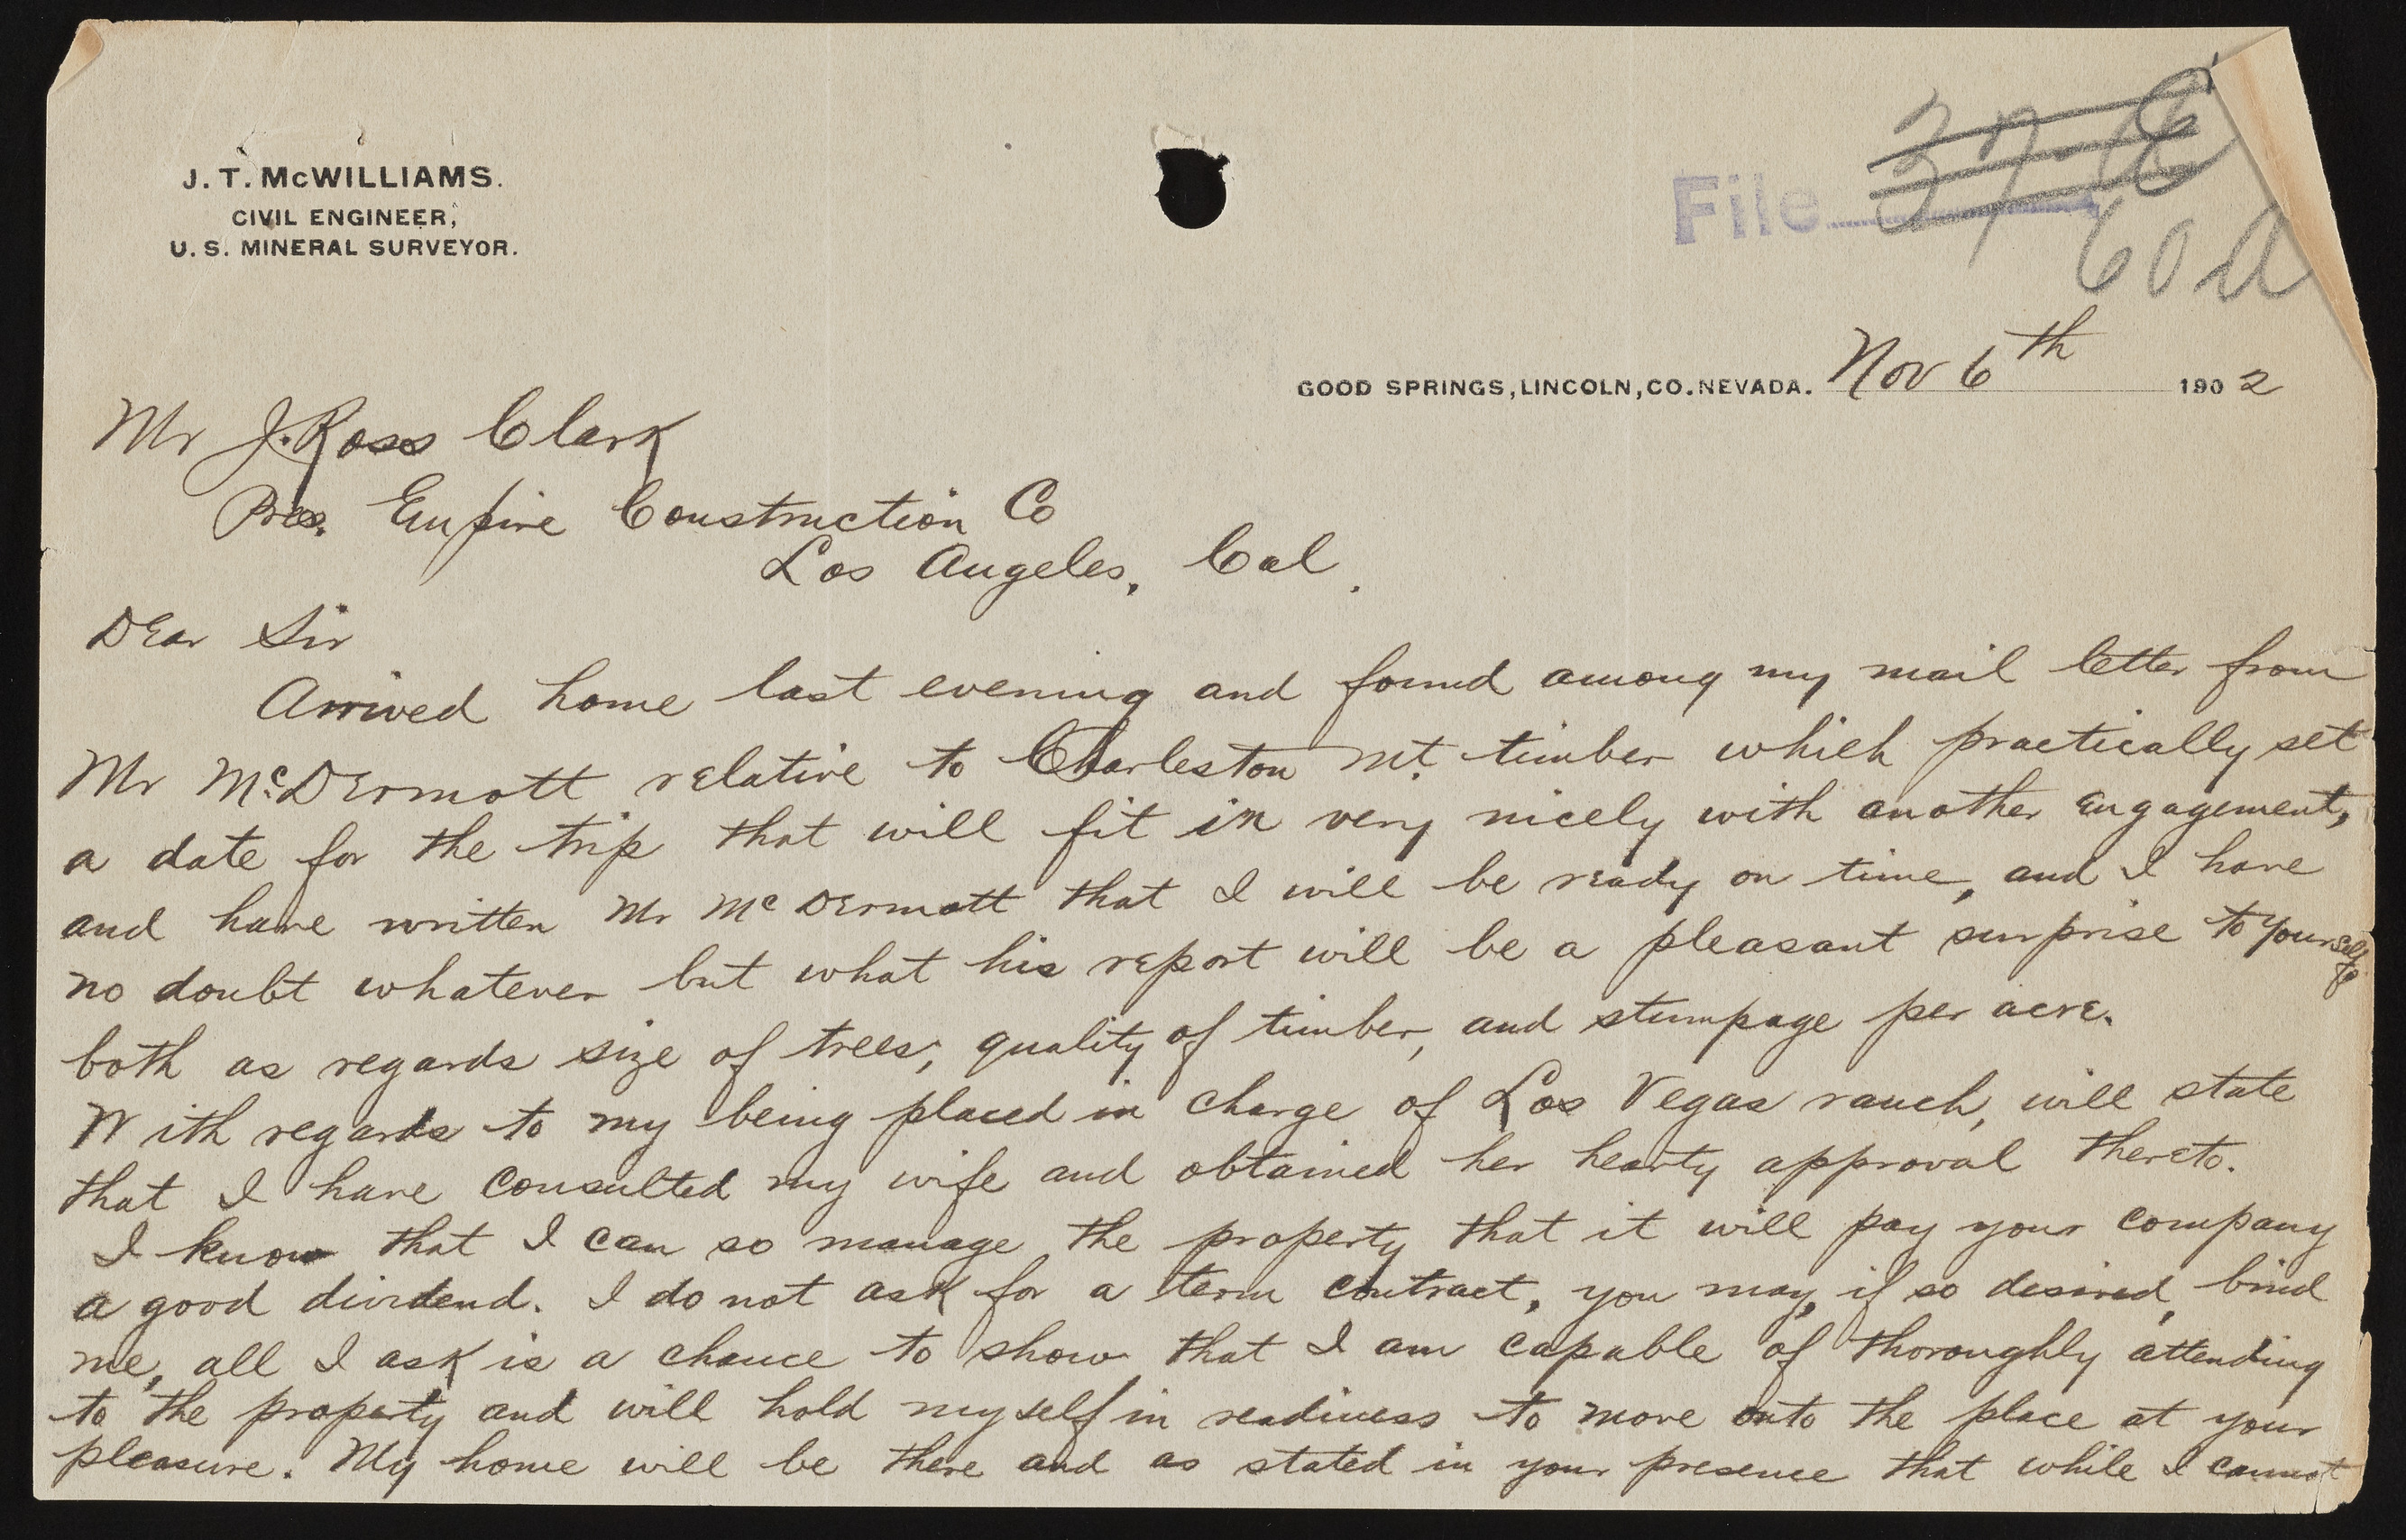 J. T. McWILLIAMS.
CIVIL ENGINEER,
U. S. MINERAL SURVEYOR.
File
37-6
60a
GOOD SPRINGS, LINCOLN, CO. NEVADA. Nov 6th 1902
Mr J. Ross Clark
Pres. Empire Construction Co
Los Angeles, Cal.
Dear Sir
Arrived home last evening and found among my mail letter from
Mr McDermott relative to Charleston Mt. timber which practically set
a date for the trip that will fit in very nicely with another engagement,
and have written Mr McDermott that I will be ready on time, and I have
no doubt whatever but what his report will be a pleasant surprise to yourself
both as regards size of trees, quality of timber, and stumpage per acre.
With regards to my being placed in charge of Los Vegas ranch, will state
that I have consulted my wife and obtained her hearty approval thereto.
I know that I can so manage the property that it will pay your company
a good dividend. I do not ask for a term contract, you may, if so desired, bind
me, all I ask is a chance to show that I am capable of thoroughly attending
to the property and will hold myself in readiness to move onto the place at your
pleasure. My home will be there and as stated in your presence that while I cannot